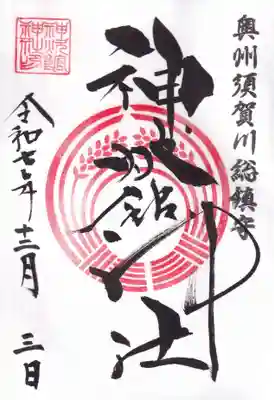 奥州須賀川総鎮守
神炊館神社
令和七年
十二月
三日
神炊館
神社